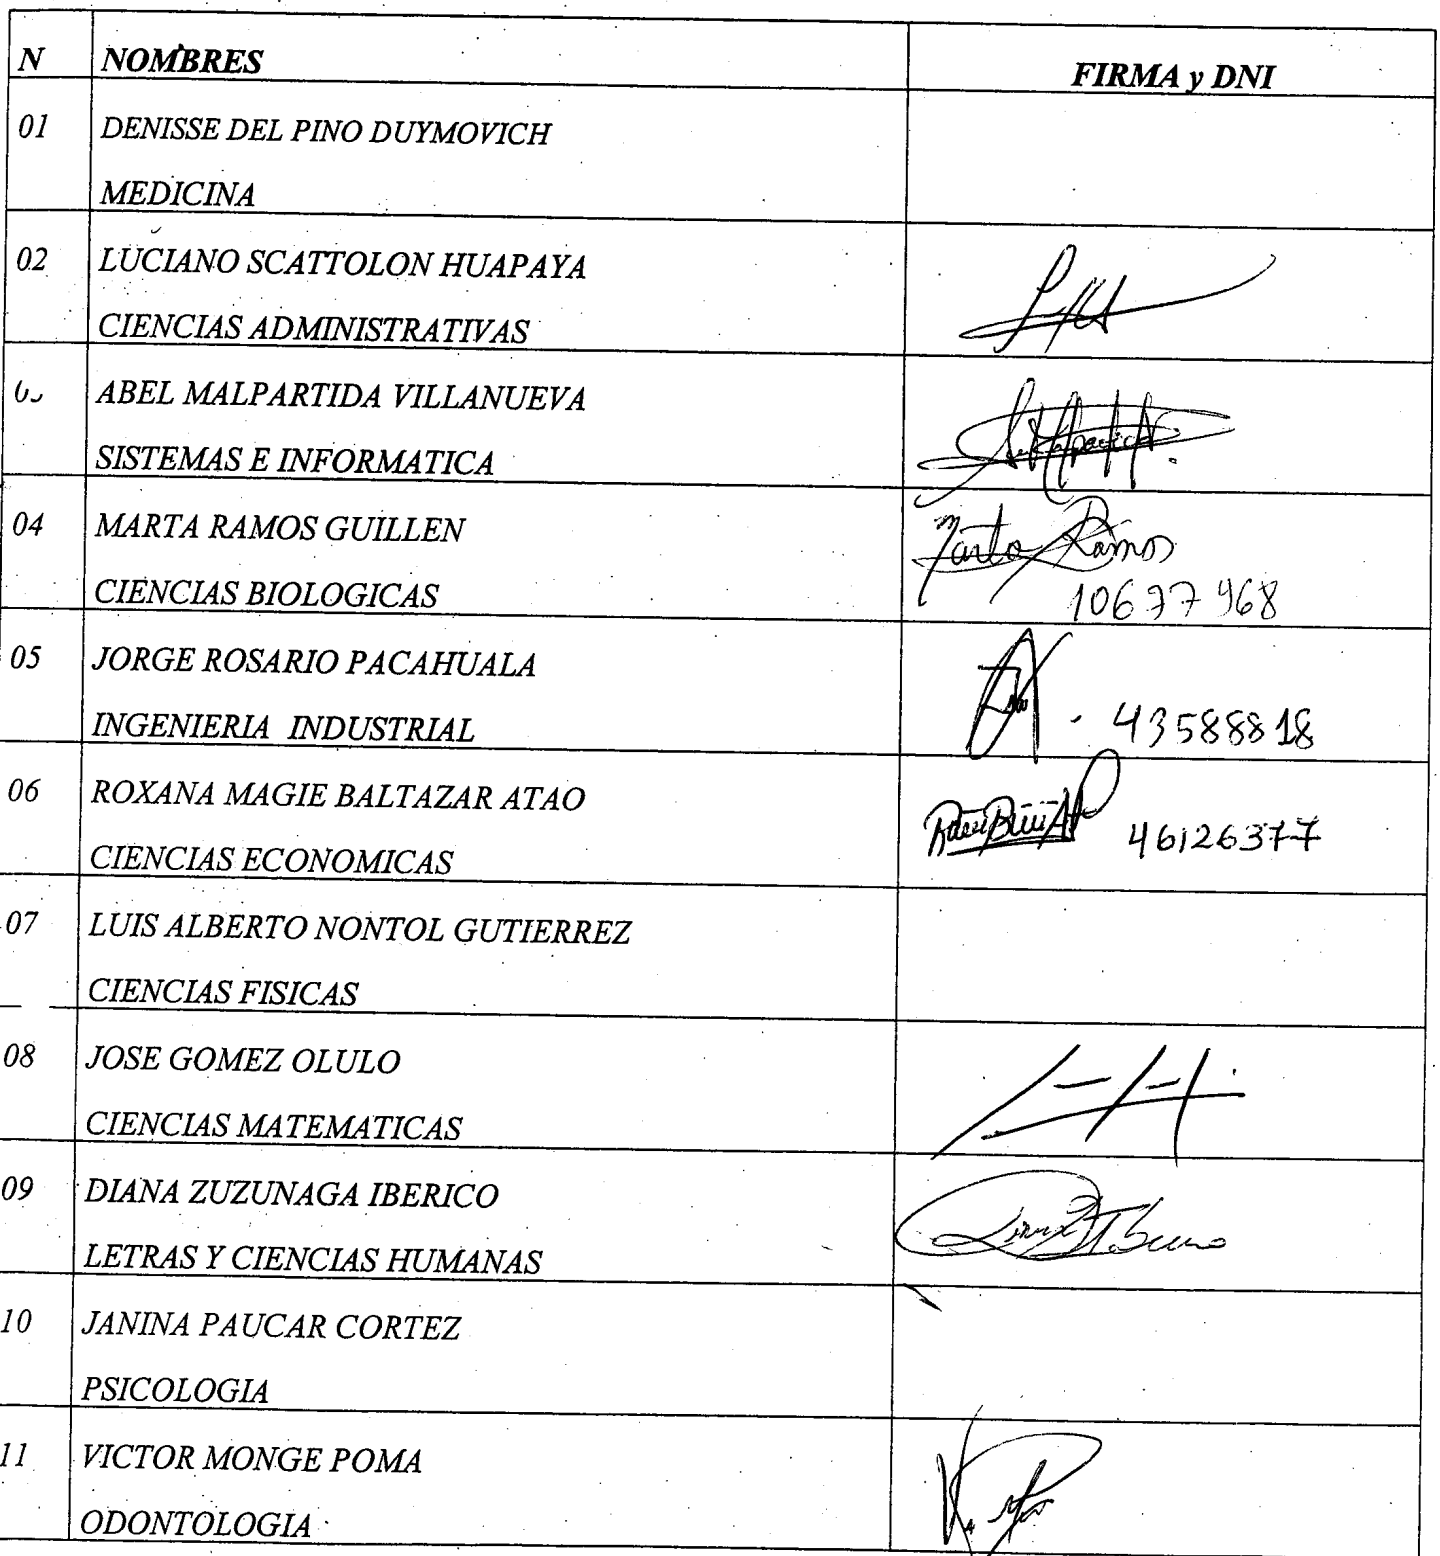 N NOMBRES FIRMA y DNI
01 DENISSE DEL PINO DUYMOVICH
MEDICINA
02 LUCIANO SCATTOLON HUAPAYA
CIENCIAS ADMINISTRATIVAS
ABEL MALPARTIDA VILLANUEVA
SISTEMAS E INFORMATICA
04 MARTA RAMOS GUILLEN Marta Ramos
CIENCIAS BIOLOGICAS 10677968
05 JORGE ROSARIO PACAHUALA
INGENIERIA INDUSTRIAL 43588818
06 ROXANA MAGIE BALTAZAR ATAO 46126377
CIENCIAS ECONOMICAS
07 LUIS ALBERTO NONTOL GUTIERREZ
CIENCIAS FISICAS
08 JOSE GOMEZ OLULO
CIENCIAS MATEMATICAS
09 DIANA ZUZUNAGA IBERICO
LETRAS Y CIENCIAS HUMANAS
10 JANINA PAUCAR CORTEZ
PSICOLOGIA
11 VICTOR MONGE POMA
ODONTOLOGIA